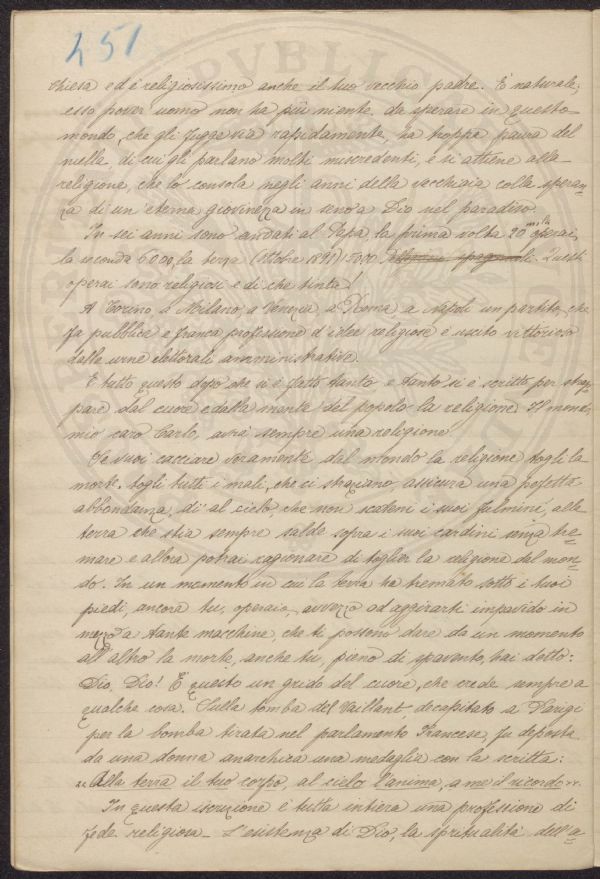 451
chiesa ed è religiosissimo anche il tuo vecchio padre. È naturale;
esso pover uomo non ha più niente da sperare in questo
mondo, che gli fugge via rapidamente, ha troppa paura del
nulla di cui gli parlano molti miscredenti, e si attiene alla
religione, che lo consola negli anni della vecchiaia colla speran-
za di un'eterna giovinezza in seno a Dio nel paradiso.
In sei anni sono andati al Papa, la prima volta 20 mila operai,
la seconda 6000, la terza (Ottobre 1891) Questi
operai sono religiosi e di che tinta!
A Torino, a Milano, a Venezia, a Roma a Napoli un partito, che
fa pubblica e franca professione d'idee religiose è uscito vittorioso
dalle urne elettorali amministrative.
E tutto questo dopo che si è fatto tanto e tanto si è scritto per strap-
pare dal cuore e dalla mente del popolo la religione. Il mondo,
mio caro Carlo, avrà sempre una religione.
Se vuoi cacciare veramente dal mondo la religione togli la
morte, togli tutti i mali, che ci straziano, assicura una perfetta
abbondanza, di' al cielo, che non scateni i suoi fulmini, alla
terra che stia sempre salda sopra i suoi cardini senza tre-
mare e allora potrai ragionare di toglier la religione dal mon-
do. In un momento in cui la terra ha tremato sotto i tuoi
piedi, ancora tu, operaio, avvezzo ad aggirarti impavido in
mezzo a tante macchine, che ti possono dare da un momento
all'altro la morte, anche tu, pieno di spavento, hai detto:
Dio, Dio! È questo un grido del cuore, che crede sempre a
qualche cosa. Sulla tomba del Vaillant, decapitato a Parigi
per la bomba tirata nel parlamento Francese, fu deposta
da una donna anarchica una medaglia con la scritta:
"Alla terra il tuo corpo, al cielo l'anima, a me il ricordo".
In questa iscrizione è tutta intiera una professione di
fede religiosa. L'esistenza di Dio, la spiritualità dell'a-